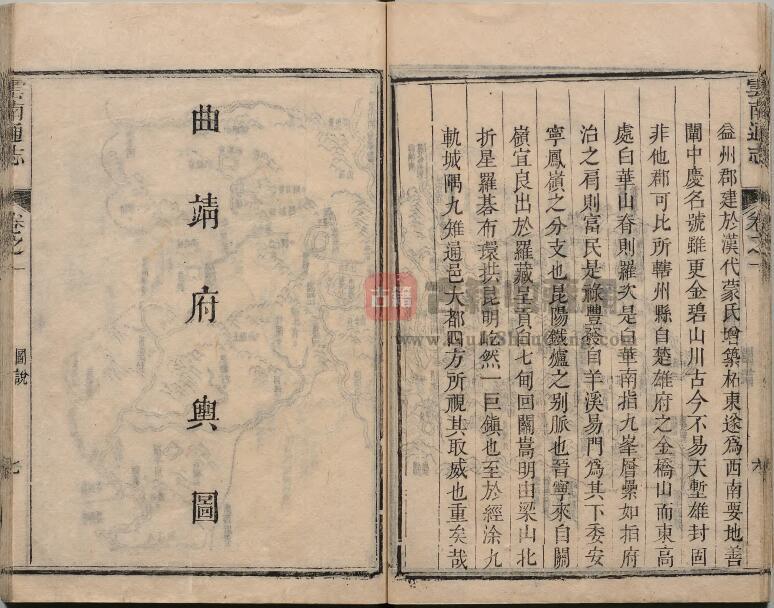 雲南通志
卷之一
六
益州郡建於漢代蒙氏增築柘東遂爲西南要地善
闡中慶名號雖更金碧山川古今不易天塹雄封固
非他郡可比所轄州縣自楚雄府之金橋山而東高
處白華山脊則羅次是白華南指九峯層纍如指府
治之肩則富民是祿豐發自羊溪易門爲其下委安
寧鳳嶺之分支也昆陽鐵爐之别脈也晉寧來自關
嶺宜良出於羅藏呈貢自七甸回關嵩明由梁山北
折星羅碁布環拱昆明屹然一巨鎮也至於經涂九
軌城隅九雉通邑大都四方所視其取威也重矣哉
曲靖府輿圖
雲南通志
卷之一
圖說
七
古籍